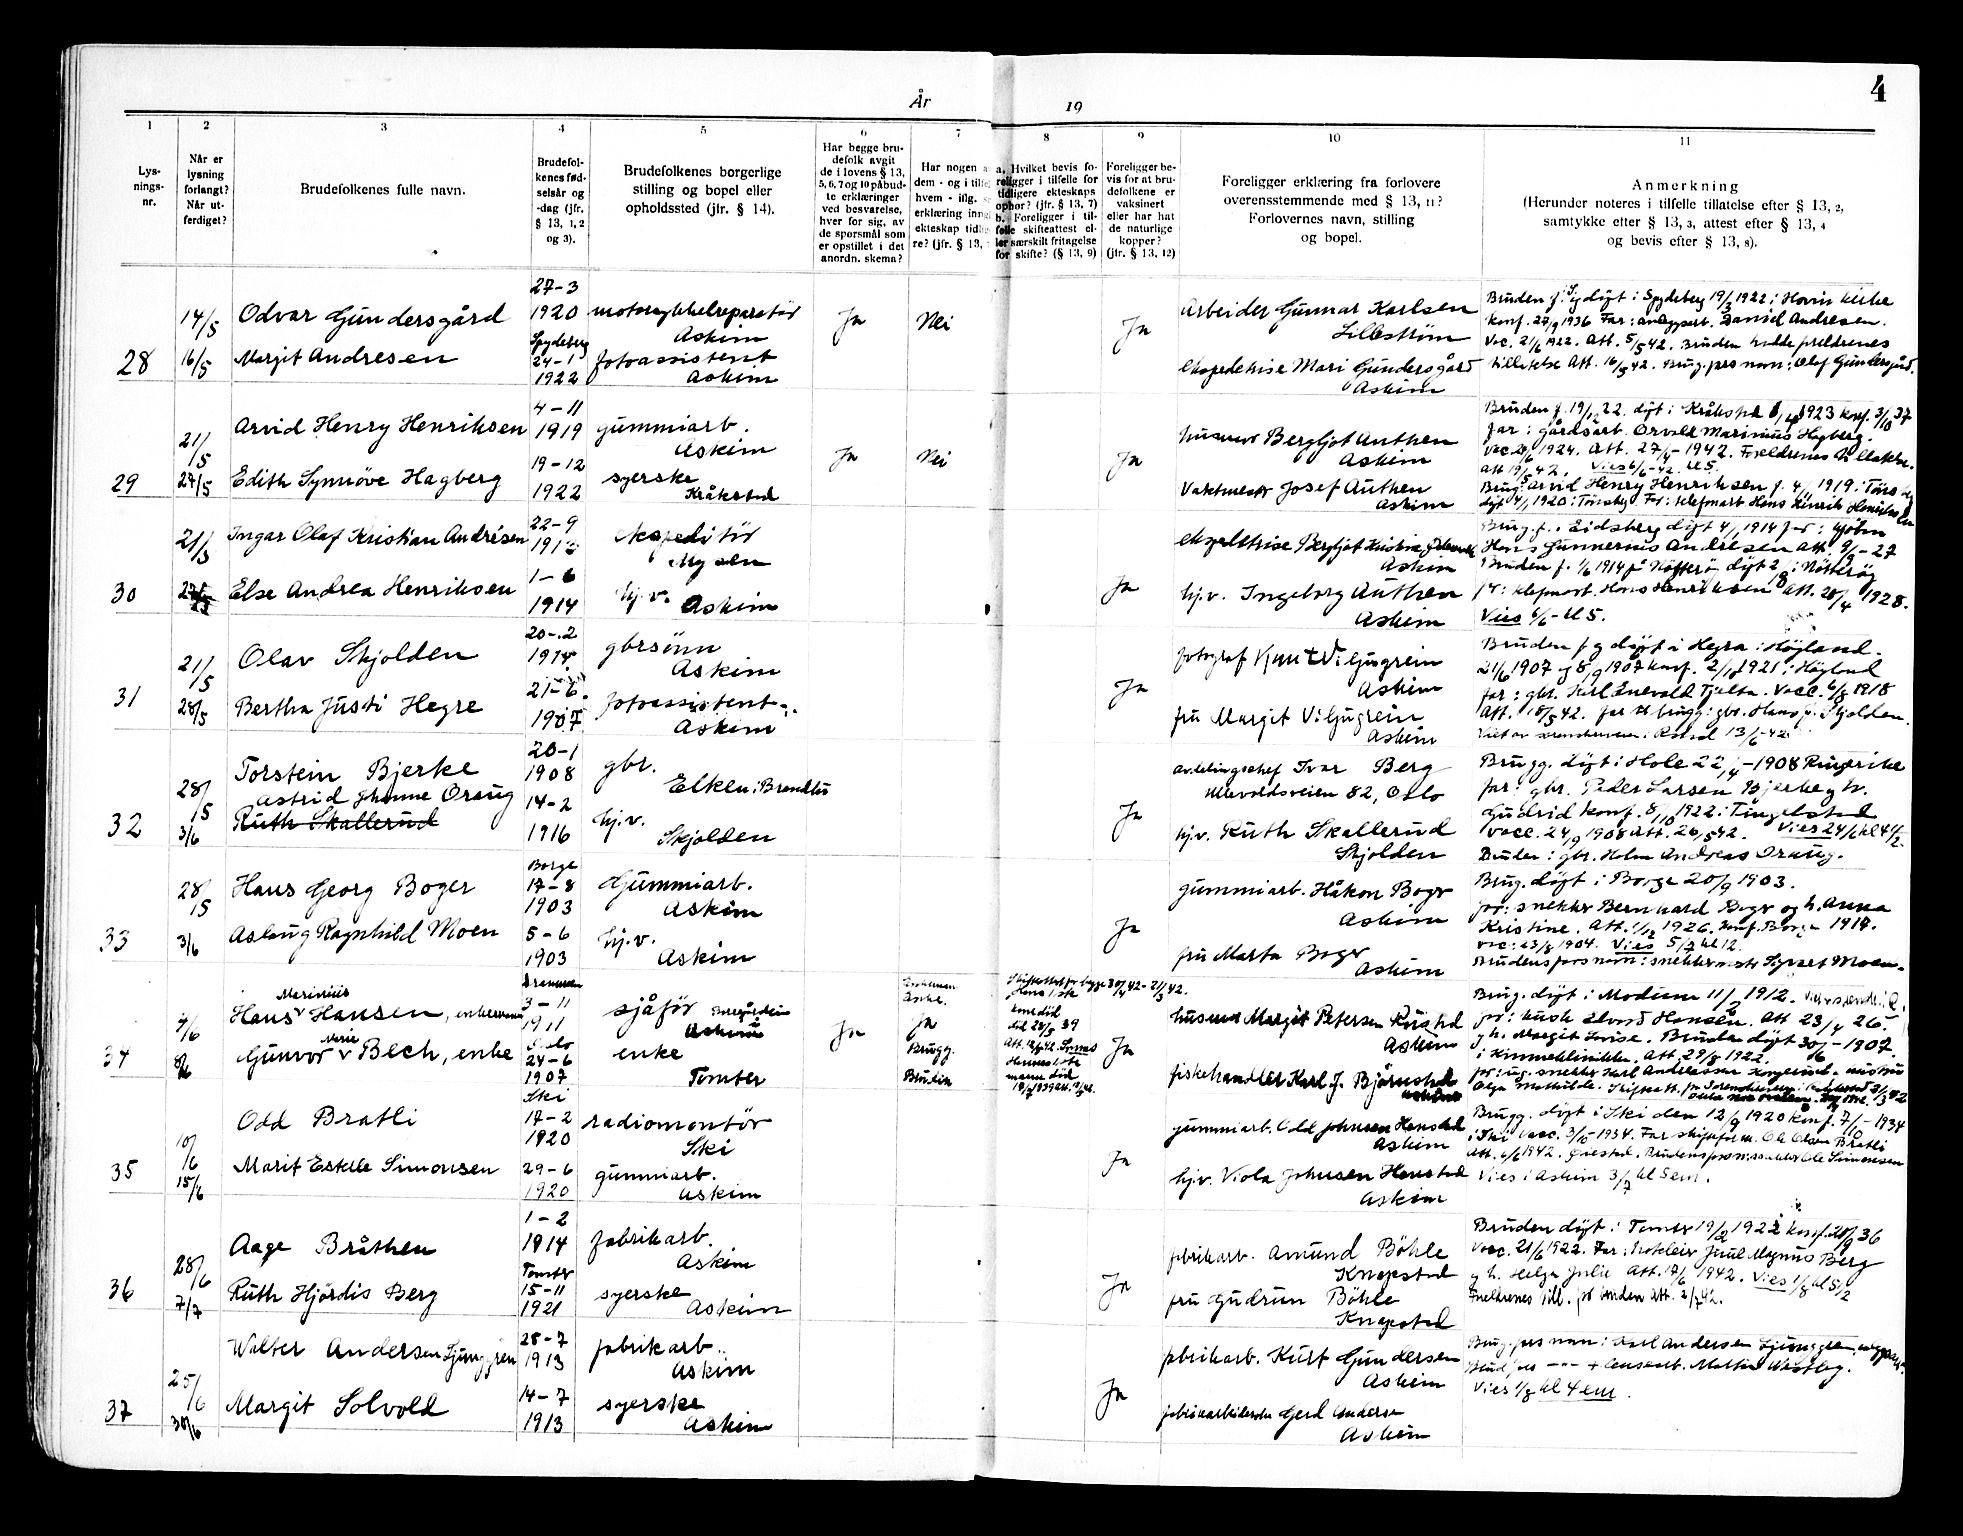 4
År 19
1
2
3
4
5
6
7
8
9
10
11
Lys-
nings-
nr.
Når er
lysning
forlangt?
Når ut-
ferdiget?
Brudefolkenes fulle navn.
Brudefol-
kenes fød-
selsår og
-dag (jfr.
§ 13, 1, 2
og 3).
Brudefolkenes borgerlige
stilling og bopel eller
opholdssted (jfr. § 14).
Har begge bru-
defolk avgit
de i lovens § 13,
5, 6, 7 og 10 påbud-
te erklæringer
ved besvarelse,
hver for sig, av
de spørsmål som
er opstillet i det
anordn. skema?
Har nogen a
dem - og i tilfe
hvem - iflg.
erklæring inng
ekteskap tidlig
re? (jfr. § 13,
a. Hvilket bevis fo-
religger i tilfelle for
tidligere ekteskaps
ophør? (jfr. § 13, 7)
b. Foreligger i til-
felle skifteattest el-
ler særskilt fritagelse
for skifte? (§ 13, 9)
Foreligger be-
vis for at bru-
defolkene er
vaksinert
eller har hat
de naturlige
kopper?
(jfr. § 13, 12)
Foreligger erklæring fra forlovere
overensstemmende med § 13, 11?
Forlovernes navn, stilling
og bopel.
Anmerkning
(Herunder noteres i tilfelle tillatelse efter § 13, 2,
samtykke efter § 13, 3, attest efter § 13, 4
og bevis efter § 13, 8).
28
14/5
16/5
Odvar Gundersgård
Margit Andresen
27-3
1920
Spydeberg
24-1
1922
motorsykkelreparatør
Askim
fotoassistent
Askim
Ja
Nei
Ja
Arbeider Gunnar Karlsen
Lillestrøm
ekspeditrise Mari Gundersgård
Askim
Bruden f. og døpt i Spydeberg 19/3 1922 i Hovin kirke
konf. 27/9 1936 Far: anleggsarb. Daniel Andresen.
Vac. 21/6 1922. Att. 5/5 42. Bruden hadde foreldrenes
tillatelse Att. 16/5 42. Brug. fars navn: Olaf Gundersgård.
29
21/5
27/5
Arvid Henry Henriksen
Edith Synnöve Hagberg
4-11
1919
19-12
1922
gummiarb.
Askim
syerske
Kråkstad
Ja
Nei
Ja
Bergljot Authen
Askim
Vaktmester Josef Authen
Askim
Bruden f. 19/12 22. døpt i Kråkstad 1923 konf. 3/10 37
Far: gårdsarb. Orvald Marinius Hagberg.
1924. Att. 27/4-1942. Foreldrenes tillatelse.
att 19/5 42. Vies 6/6-42. kl 5.
Brug. Arvid Henry Henriksen f. 4/11 1919 i
døpt 4/1 1920 i Tønsberg Far: Hans Henrik Henriksen
30
21/5
Ingar Olaf Kristian Andrésen
Else Andrea Henriksen
22-9
1913
1-6
1914
ekspeditör
Mysen
hj.v.
Askim
Ja
ekspeditrise Bergljot Kristine
Askim
hj.v. Ingeborg Authen
Askim
Brug. f. i Eidsberg døpt 4/1 1914 far:
Hans Gunnerius Andresen att. 9/9-27
Bruden f. 1/6 1914 på Nötterö døpt 2/8 i Nötteröy
far: Hans Henriksen att. 28/4 1928.
Vies 6/6-kl 5.
31
21/5
28/5
Olav Skjolden
Bertha Justi Hegre
20-2
1914
21-6
1907
gbrsönn
Askim
fotoassistent
Askim
Ja
fotograf Knut Viljugrein
Askim
fru Margit Viljugrein
Askim
Bruden f og døpt i Hegra i Høyland.
21/6 1907 og 8/9 1907 konf. 1921 i Høyland
far: gbr. Karl Enevold Tjelta. Vacc. 1918
Att. 18/5 42. Far til brugg: gbr. Hans J. Skjolden.
Viet av sorenskriveren i 13/6-42
32
28/5
3/6
Torstein Bjerke
Astrid Johanne Oraug
Ruth Skallerud
20-1
1908
14-2
1916
gbr.
hj.v.
Skjolden
Ja
avdelingschef Ivar Berg
Ullevoldsveien 82, Oslo
hj.v. Ruth Skallerud
Skjolden
Brugg. døpt i Hole 22/4-1908 Ringerike
far: gbr. Peder Larsen Bjerke og h.
Gudrid konf. 8/10 1922 i Tingelstad
vacc. 24/9 1908 Att. 26/5 42. Vies 24/6 kl 4 1/2.
Bruden: gbr. Holm Andreas Oraug.
33
28/5
3/6
Hans Georg Boger
Aslaug Ragnhild Moen
Borge
17-8
1903
5-6
1903
Gummiarb.
Askim
hj.v.
Askim
Ja
gummiarb. Håkon Boger
Askim
fru Marta Boger
Askim
Brug. døpt i Borge 20/9 1903.
far: snekker Bernhard Boger og h. Anna
Kristine. Att. 1926. Konf. Borge 1917.
vac: 23/8 1904. Vies 5/7 kl 12.
Brudens fars navn: snekkermester Sigvart Moen.
34
4/6
8/6
Marinius
Hans Hansen, enkemann
Marie
Gunvor Bech, enke
Drammen
3-11
1911
Oslo
24-6
1907
sjåför
enke
Tomter
Ja
Enkemann
Enke.
Ja
Brugg.
Bruden
Ja
Margit Petersen
Askim
fiskehandler Karl J. Björnstad
Brug. døpt i Modum 11/2 1912.
far: Hansen. Att 23/4 26.
og h. Margit Lovise. Bruden døpt 30/6-1907
i Kvinneklinikken. Att. 29/8 1922.
Olga Mathilde. Skifteatt.
35
10/6
15/6
Odd Bratli
Marit Estelle Simonsen
Ski
17-2
1920
29-6
1920
radiomontör
Ski
gummiarb.
Askim
Ja
gummiarb. Odd Johnsen Henstad
Askim
hj.v. Viola Johnsen Henstad
Askim
Brugg. døpt i Ski den 12/9 1920 konf. 7/10-1934
i Ski vacc. 3/10-1934. Far skiftform. Ole Olsen Bratli
att. 6/6 1942. Brudens far: Ole Simonsen
Vies i Askim 3/7 kl 5 em.
36
28/6
7/7
Aage Bråthen
Ruth Hjördis Berg
1-2
1914
Tomter
15-11
1921
fabrikarb.
Askim
syerske
Askim
Ja
fabrikarb. Amund Böhle
Knapstad
fru Gudrun Böhle
Knapstad
Bruden døpt i Tomter 19/2 1922 konf. 20/9 36
Vacc. 21/6 1922. Far: Juul Magnus Berg
og h. Helga Julie Att. 17/6 1942. Vies 1/8 kl 5 1/2
Foreldrenes till. for bruden att. 2/7 42.
37
25/6
30/6
Walter Andersen Ljunggren
Margit Solvold
28-7
1913
14-7
1913
fabrikarb.
Askim
syerske
Askim
Ja
fabrikarb. Kurt Gundersen
Askim
fabrikarbeiderske Gerd Andersen
Askim
Brug. fars navn: Karl Andersen Ljunggren,
Brud fars --- Mathias
Vies 1/8 kl 4 em.